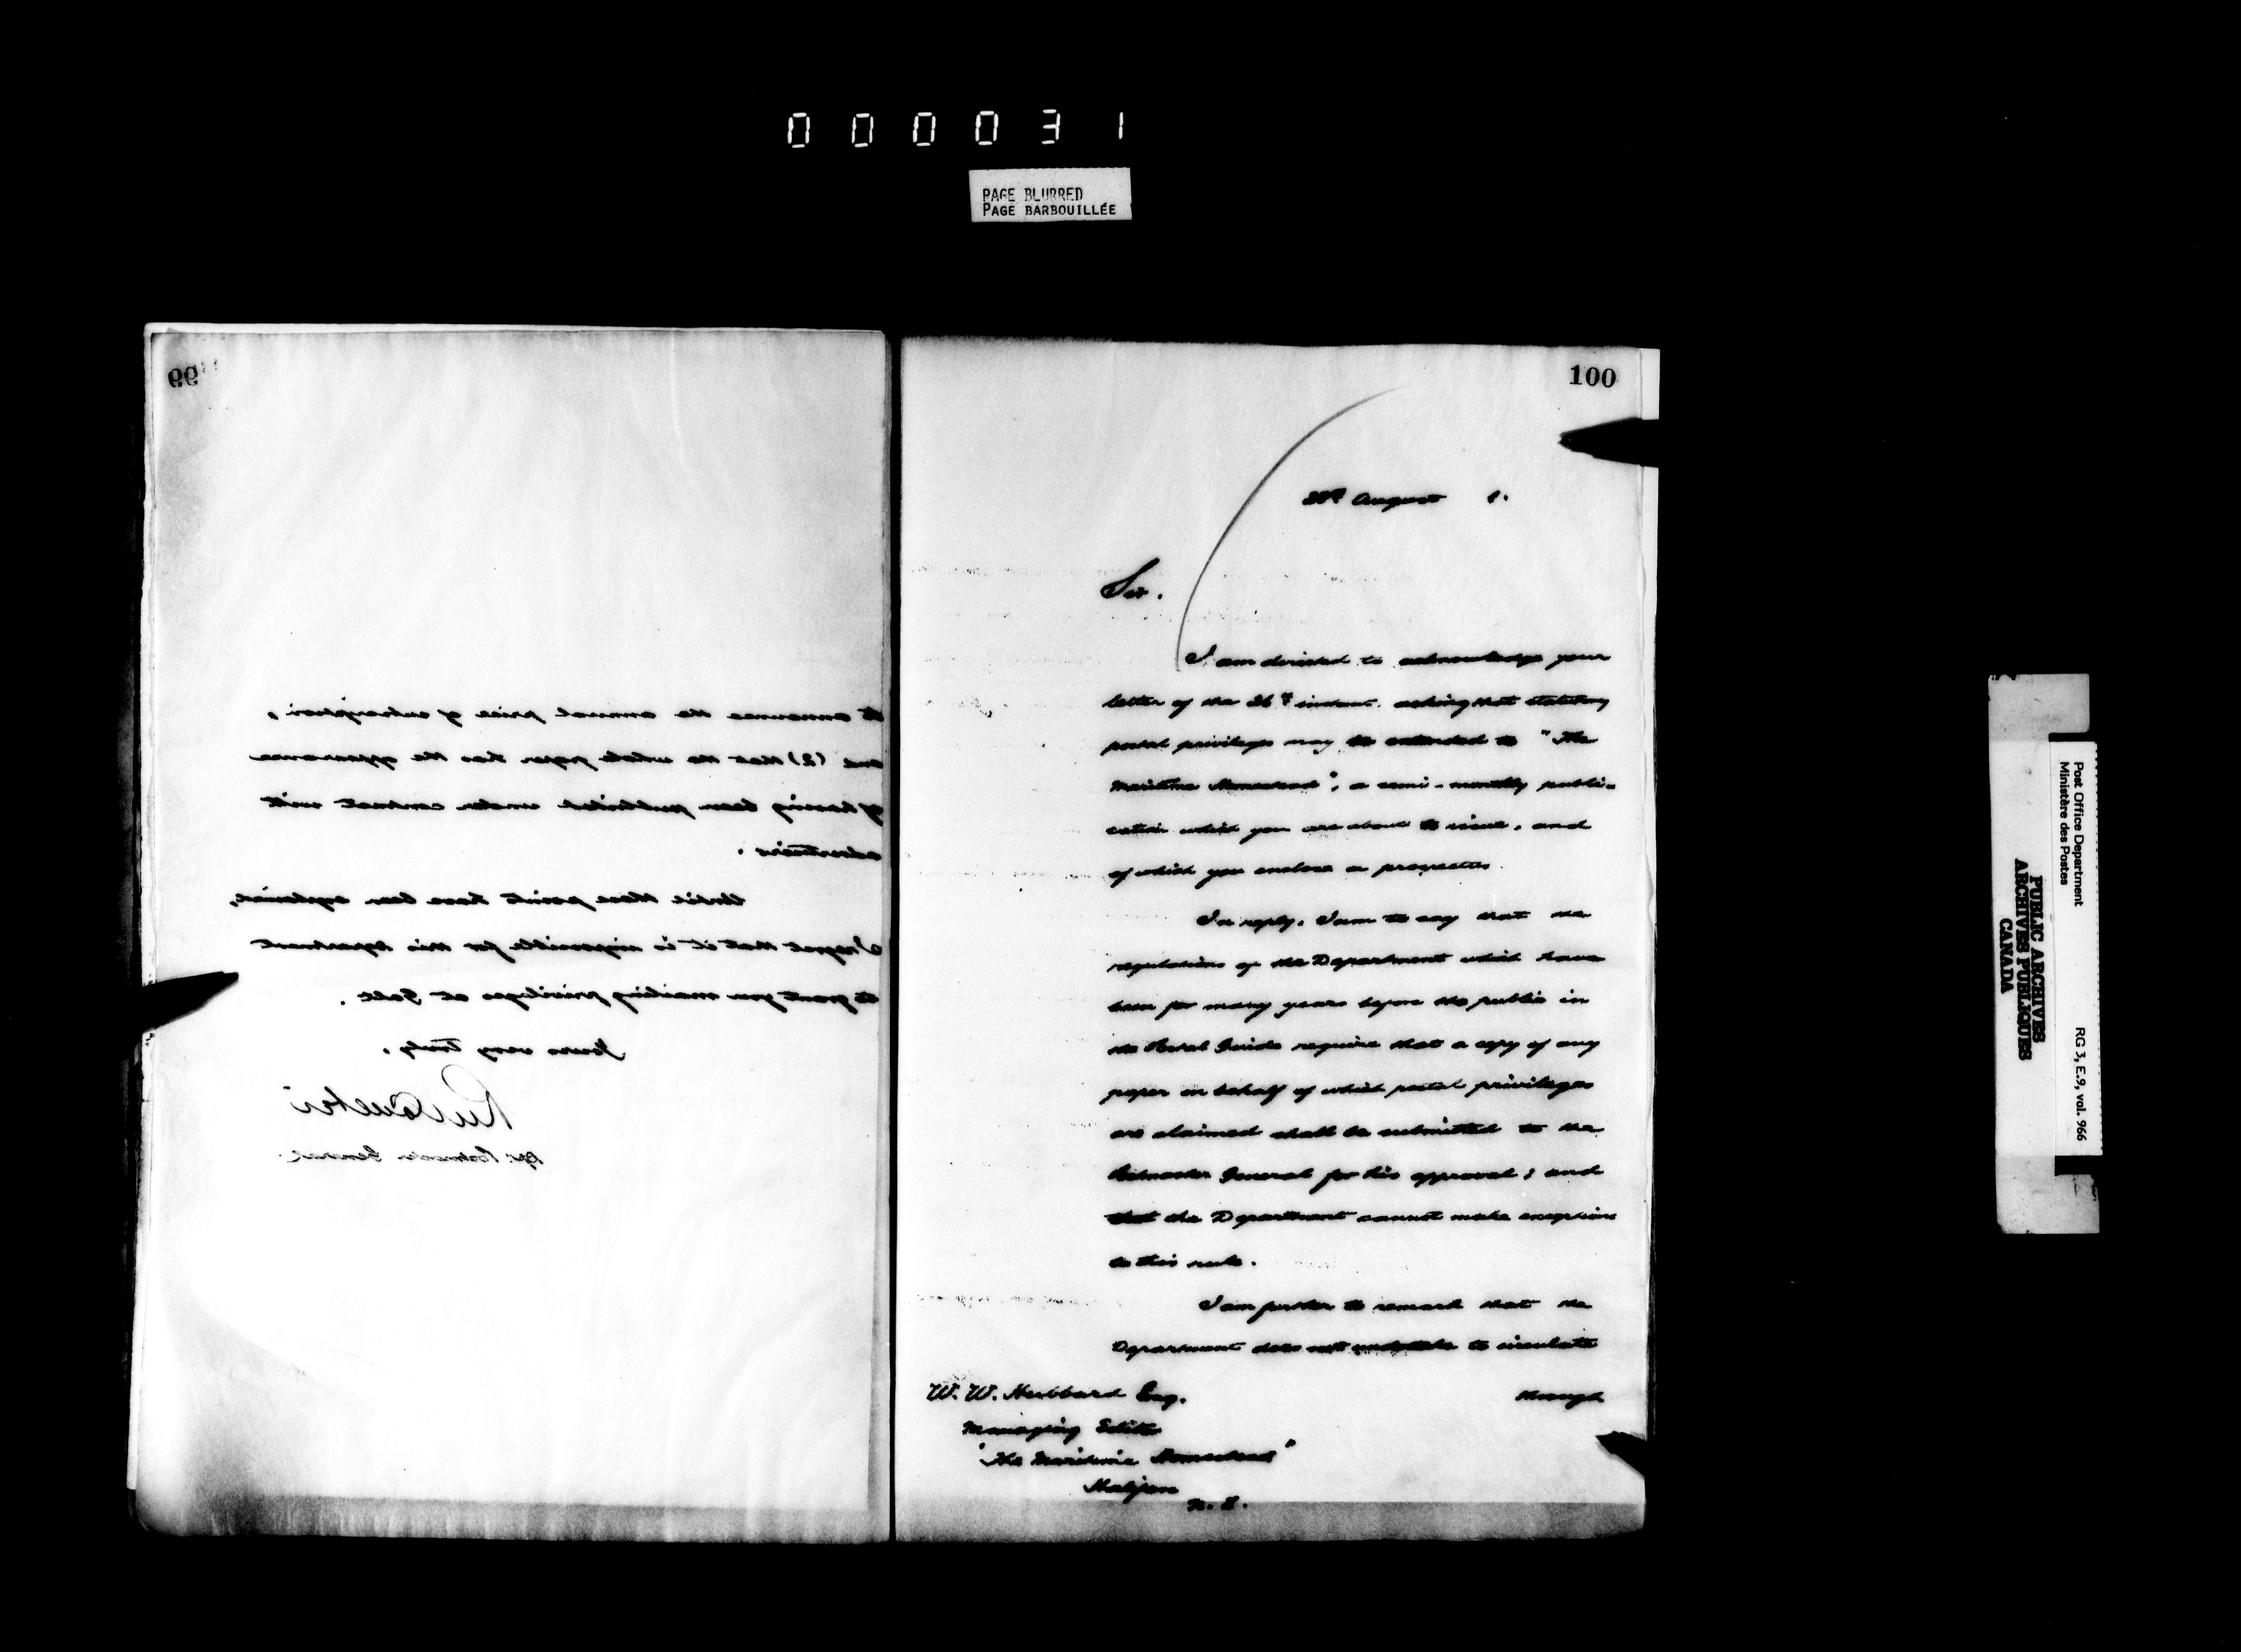 000031
PAGE BLURRED
PAGE BARBOUILLÉE
99
to announce the annual price of subscription,
and (2) that the whole paper has the appearance
of having been published under contract with
advertisers.
Until these points have been explained,
I regret that it is impossible for this department
to grant you mailing privileges at Galt.
Yours very truly,
for Postmaster General
100
August 1.
Sir.
I am directed to acknowledge your
letter of the 26th instant, asking that statutory
postal privileges may be extended to "The
Maritime Homestead", a semi-monthly publi-
cation which you are about to issue, and
of which you enclose a prospectus.
In reply, I am to say that the
regulations of the Department which have
been for many years before the public in
the Postal Guide require that a copy of any
paper on behalf of which postal privileges
are claimed shall be submitted to the
Postmaster General for his approval; and
that the Department cannot make exceptions
to this rule.
I am further to remark that the
Department does not undertake to circulate
through
W. W. Hubbard Esq.
Managing Editor
"The Maritime Homestead"
Halifax
N. S.
Post Office Department
Ministère des Postes
RG 3, E.9, vol. 966
PUBLIC ARCHIVES
ARCHIVES PUBLIQUES
CANADA